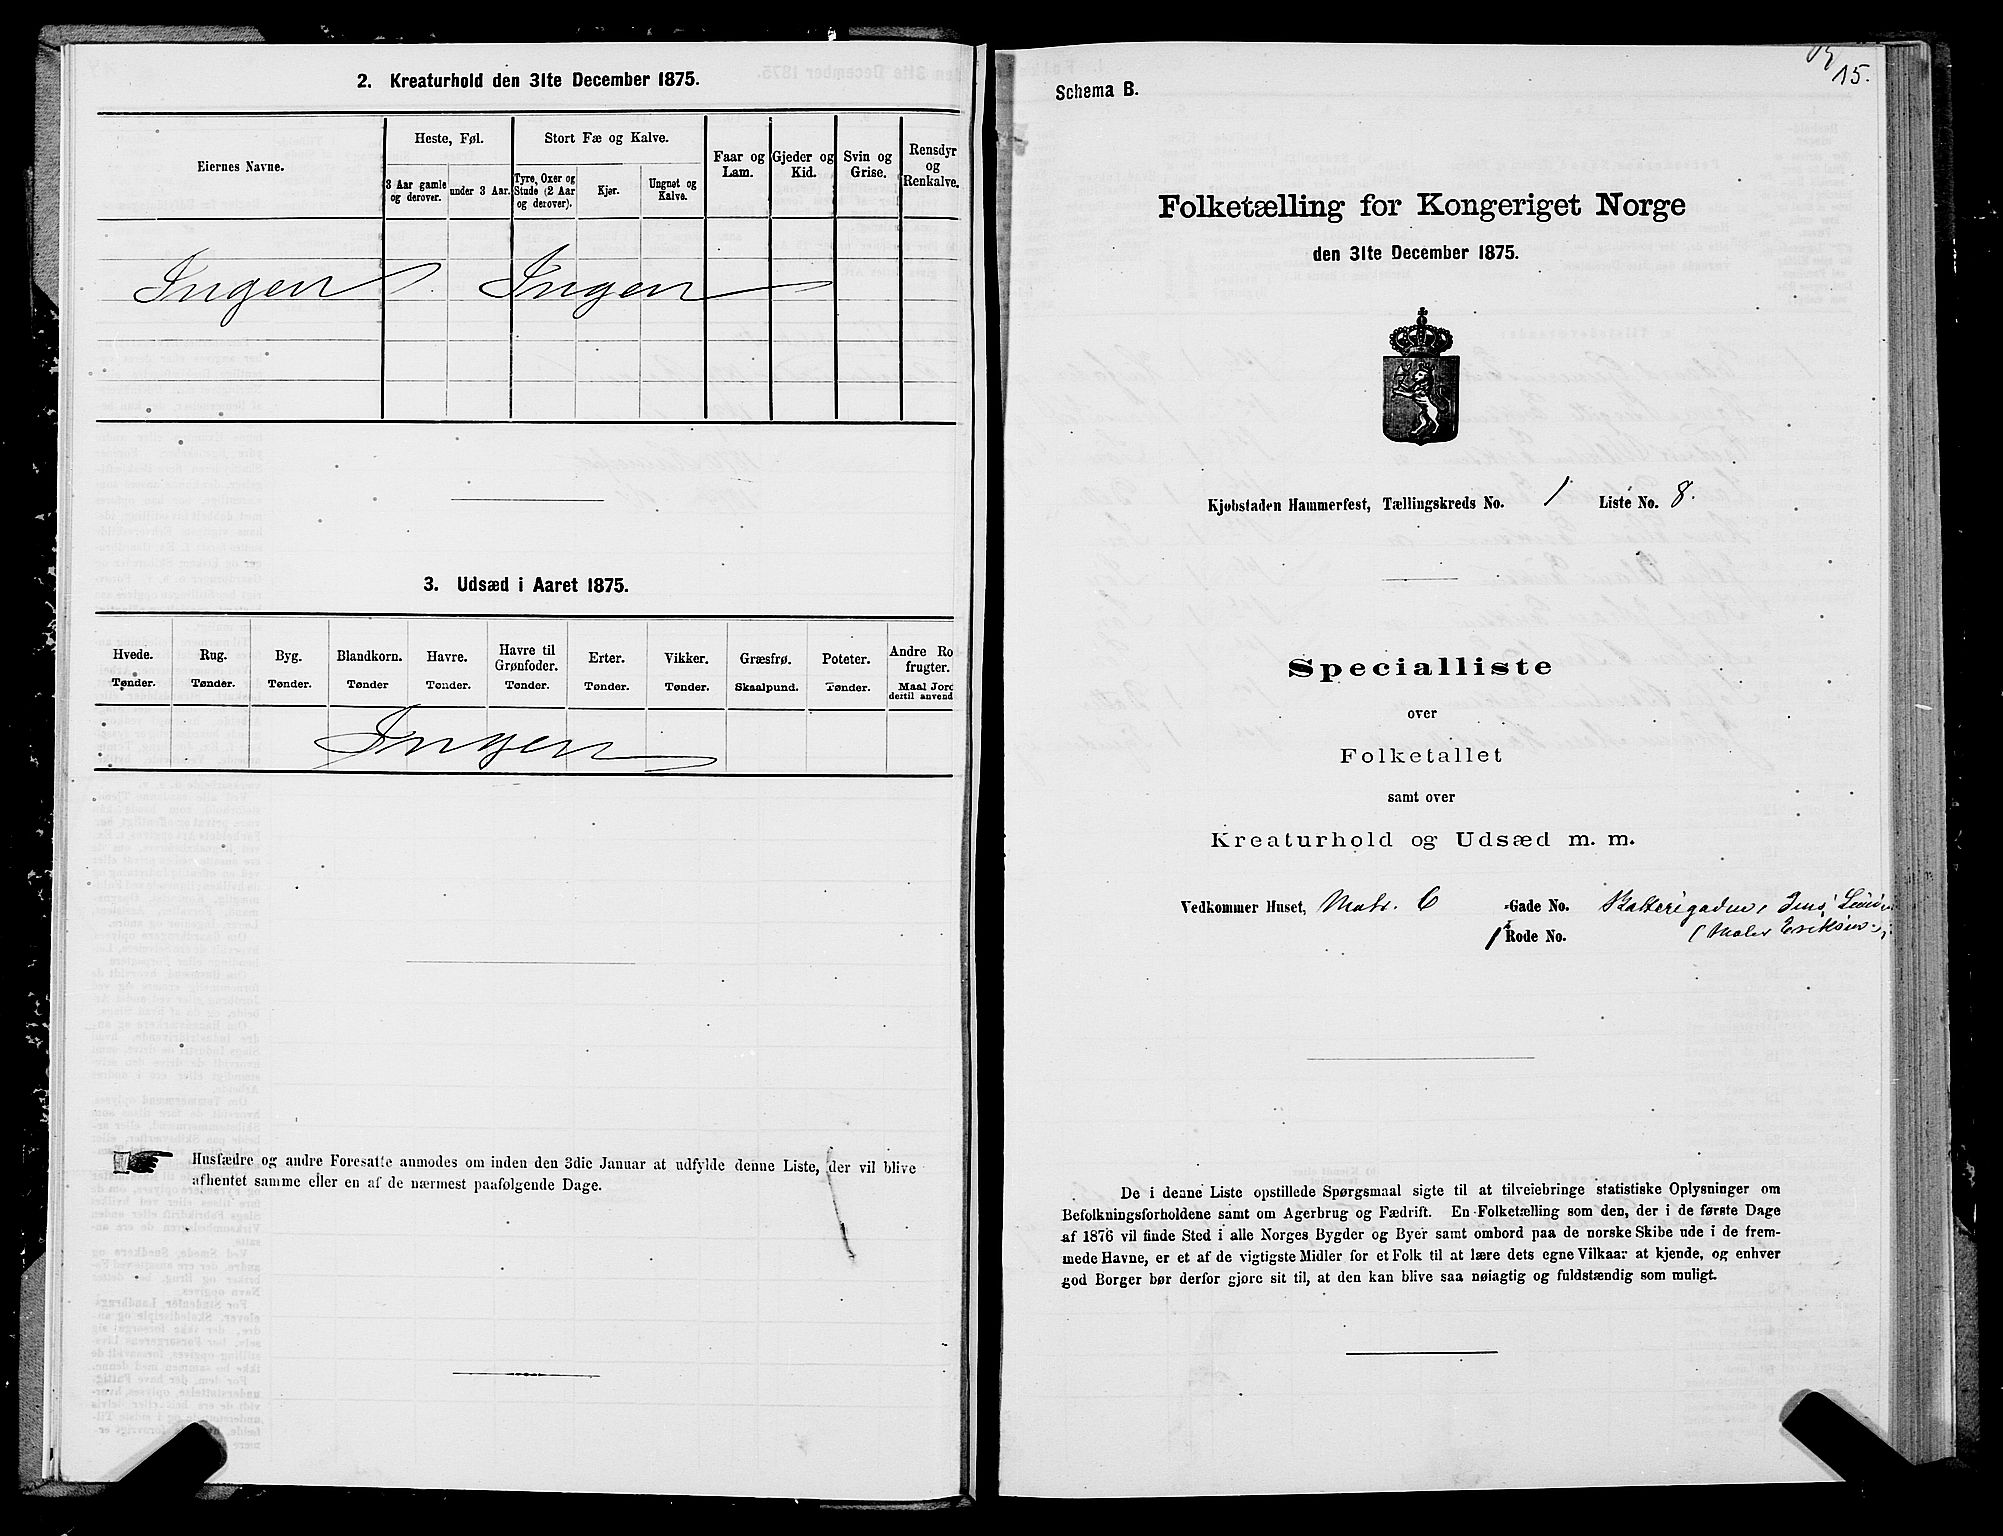 2. Kreaturhold den 31te December 1875.
Eiernes Navne.
Heste, Føl.
3 Aar gamle og derover.
under 3 Aar.
Stort Fæ og Kalve.
Tyre, Oxer og Stude (2 Aar og derover).
Kjør.
Ungnøt og Kalve.
Faar og Lam.
Gjeder og Kid.
Svin og Grise.
Rensdyr og Renkalve.
Ingen
Ingen
3. Udsæd i Aaret 1875.
Hvede. Tønder.
Rug. Tønder.
Byg. Tønder.
Blandkorn. Tønder
Havre. Tønder.
Havre til Grønfoder. Tønder.
Erter. Tønder.
Vikker. Tønder.
Græsfrø. Skaalpund.
Poteter. Tønder.
Andre Ro frugter. Maal Jord dertil anvend
Ingen
Husfædre og andre Foresatte anmodes om inden den 3die Januar at udfylde denne Liste, der vil blive
afhentet samme eller en af de nærmest paafølgende Dage.
15.
Schema B.
Folketælling for Kongeriget Norge
den 31te December 1875.
Kjøbstaden Hammerfest, Tællingskreds No. 1 Liste No. 8.
Specialliste
over
Folketallet
samt over
Kreaturhold og Udsæd m. m.
Vedkommer Huset, Matr. 6 -Gade No. Batterigaden, Jens
1 Rode No. (Maler Eriksen
De i denne Liste opstillede Spørgsmaal sigte til at tilveiebringe statistiske Oplysninger om
Befolkningsforholdene samt om Agerbrug og Fædrift. En Folketælling som den, der i de første Dage
af 1876 vil finde Sted i alle Norges Bygder og Byer samt ombord paa de norske Skibe ude i de frem-
mede Havne, er et af de vigtigste Midler for et Folk til at lære dets egne Vilkaar at kjende, og enhver
god Borger bør derfor gjøre sit til, at den kan blive saa nøiagtig og fuldstændig som muligt.